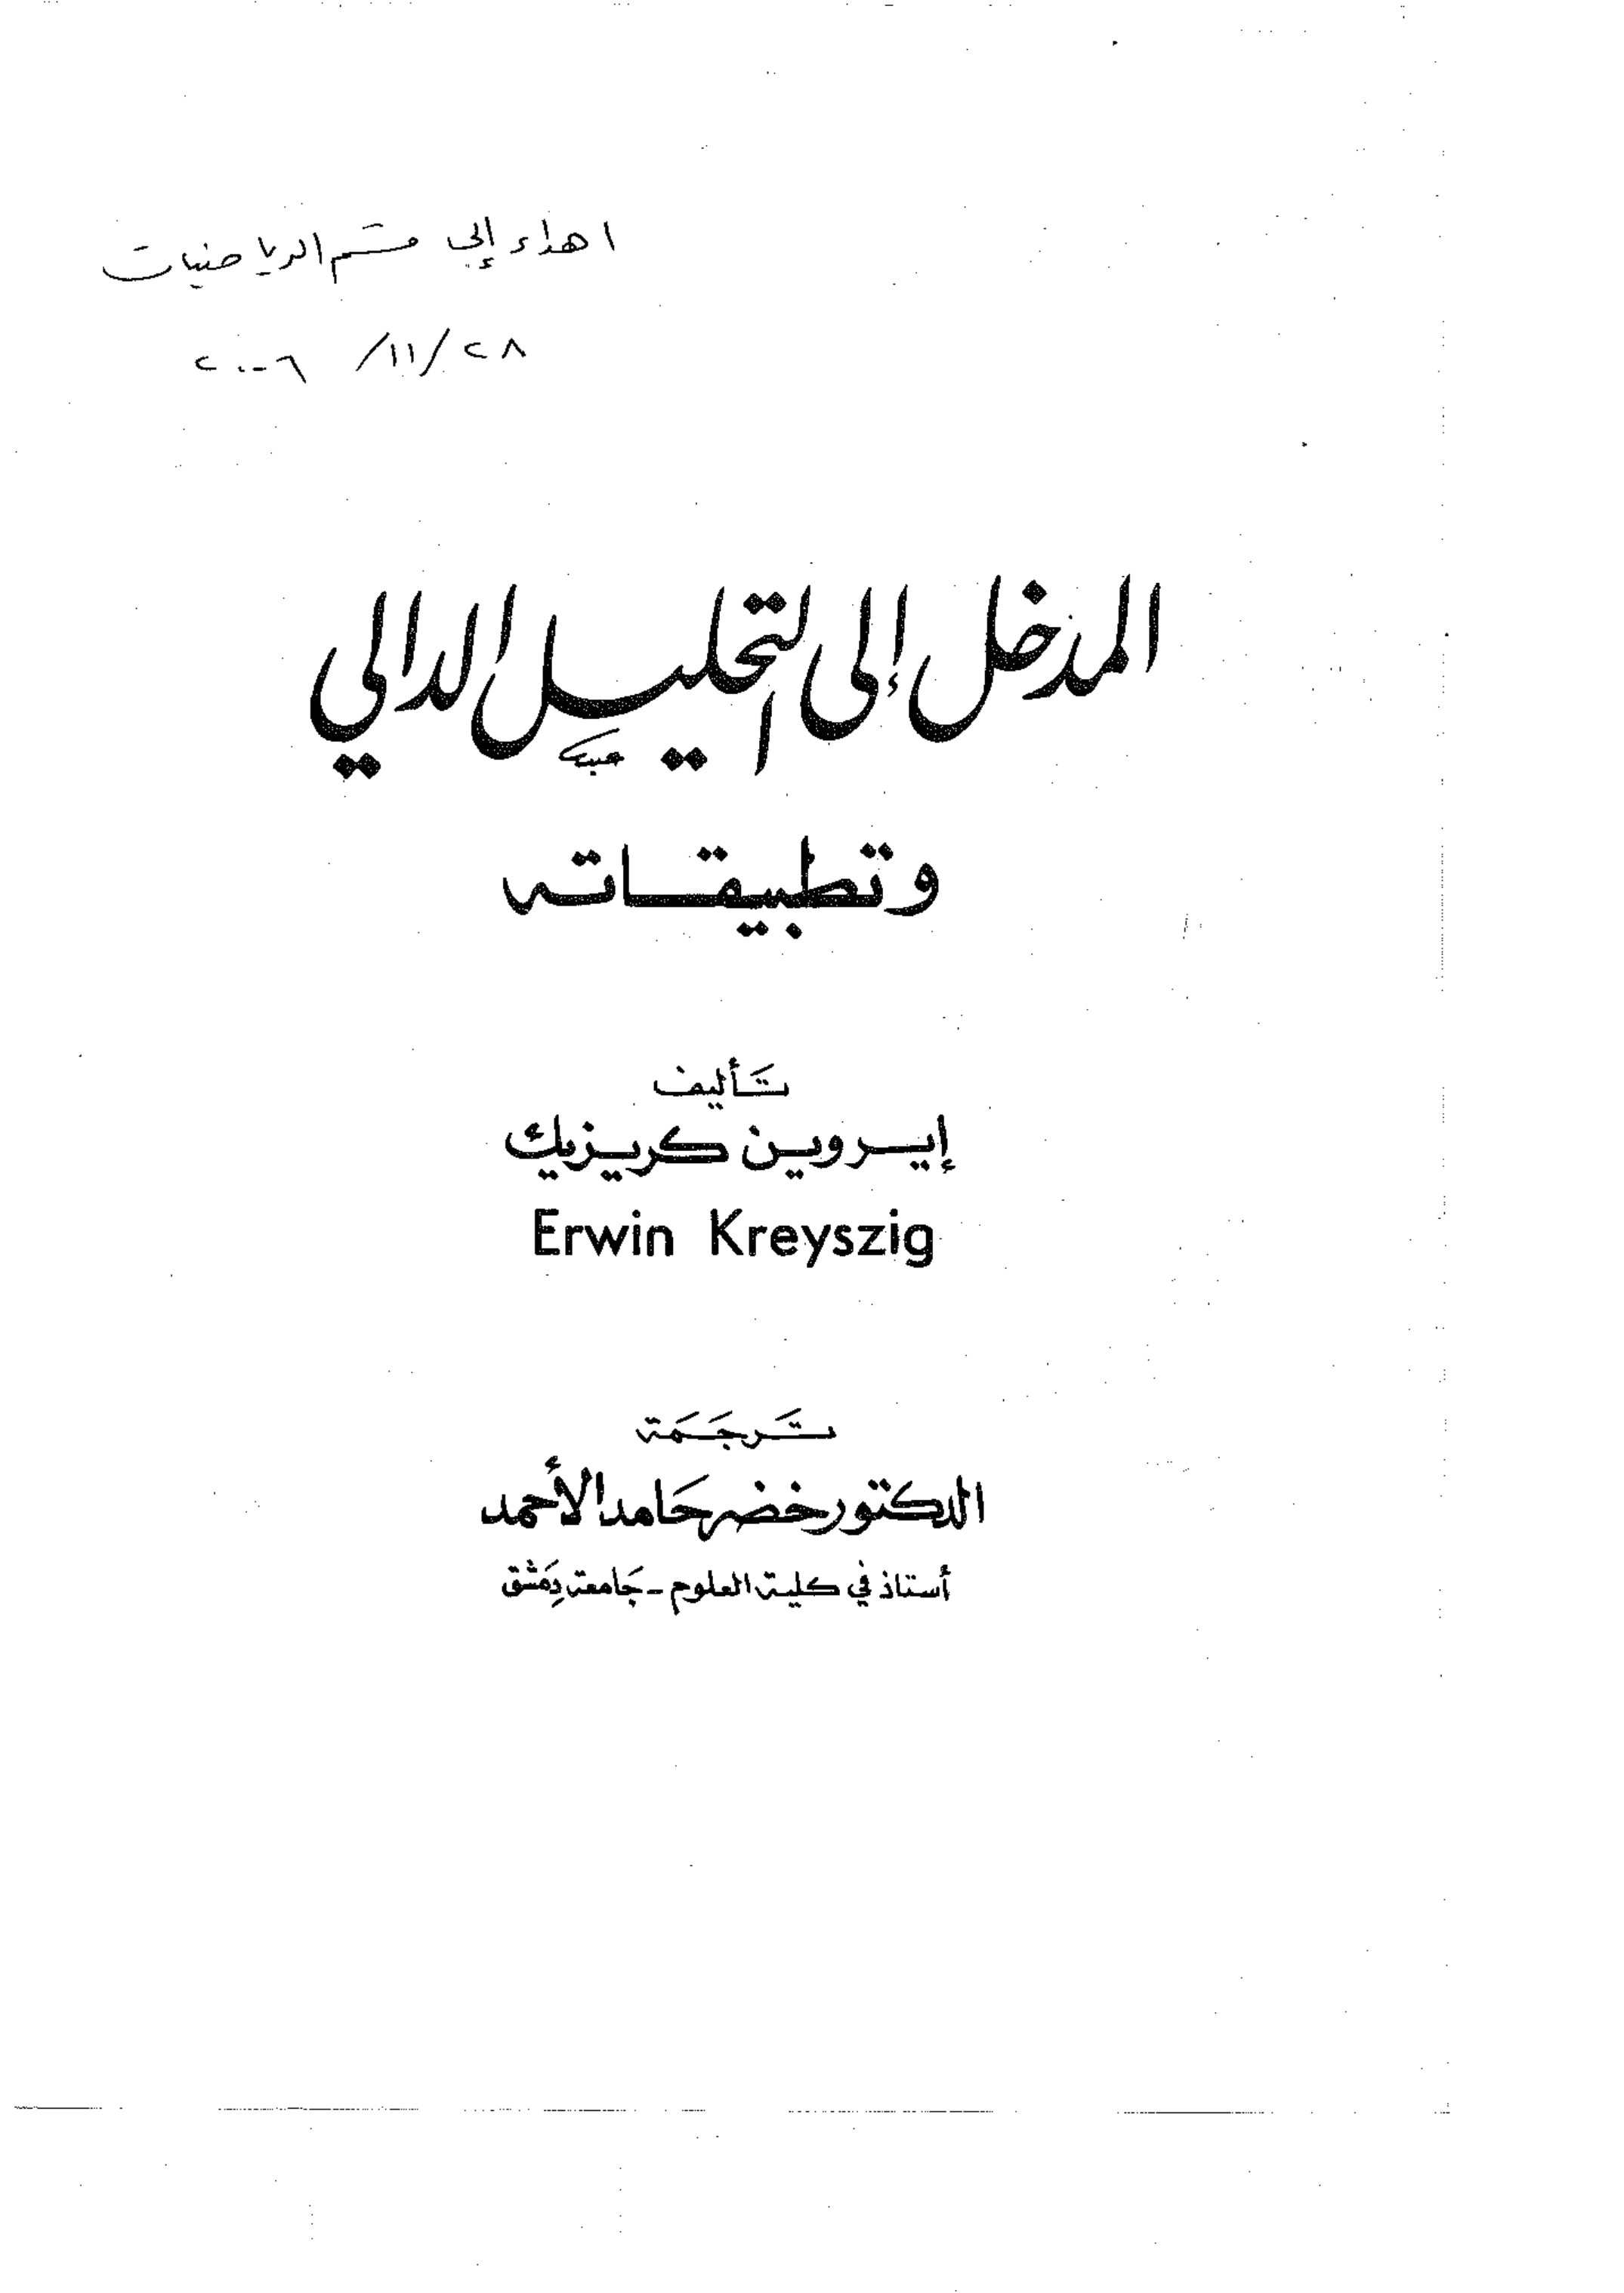 اهداء إلى قسم الرياضيات
٢٨/١١/٢٠٠٦
المدخل إلى التحليل الدالي
وتطبيقاته
تأليف
إيروين كريزيك
Erwin Kreyszig
تَرجَمَة
الدكتور خضر حَامد الأحمد
أستاذ في كلية العلوم - جَامعة دِمَشق